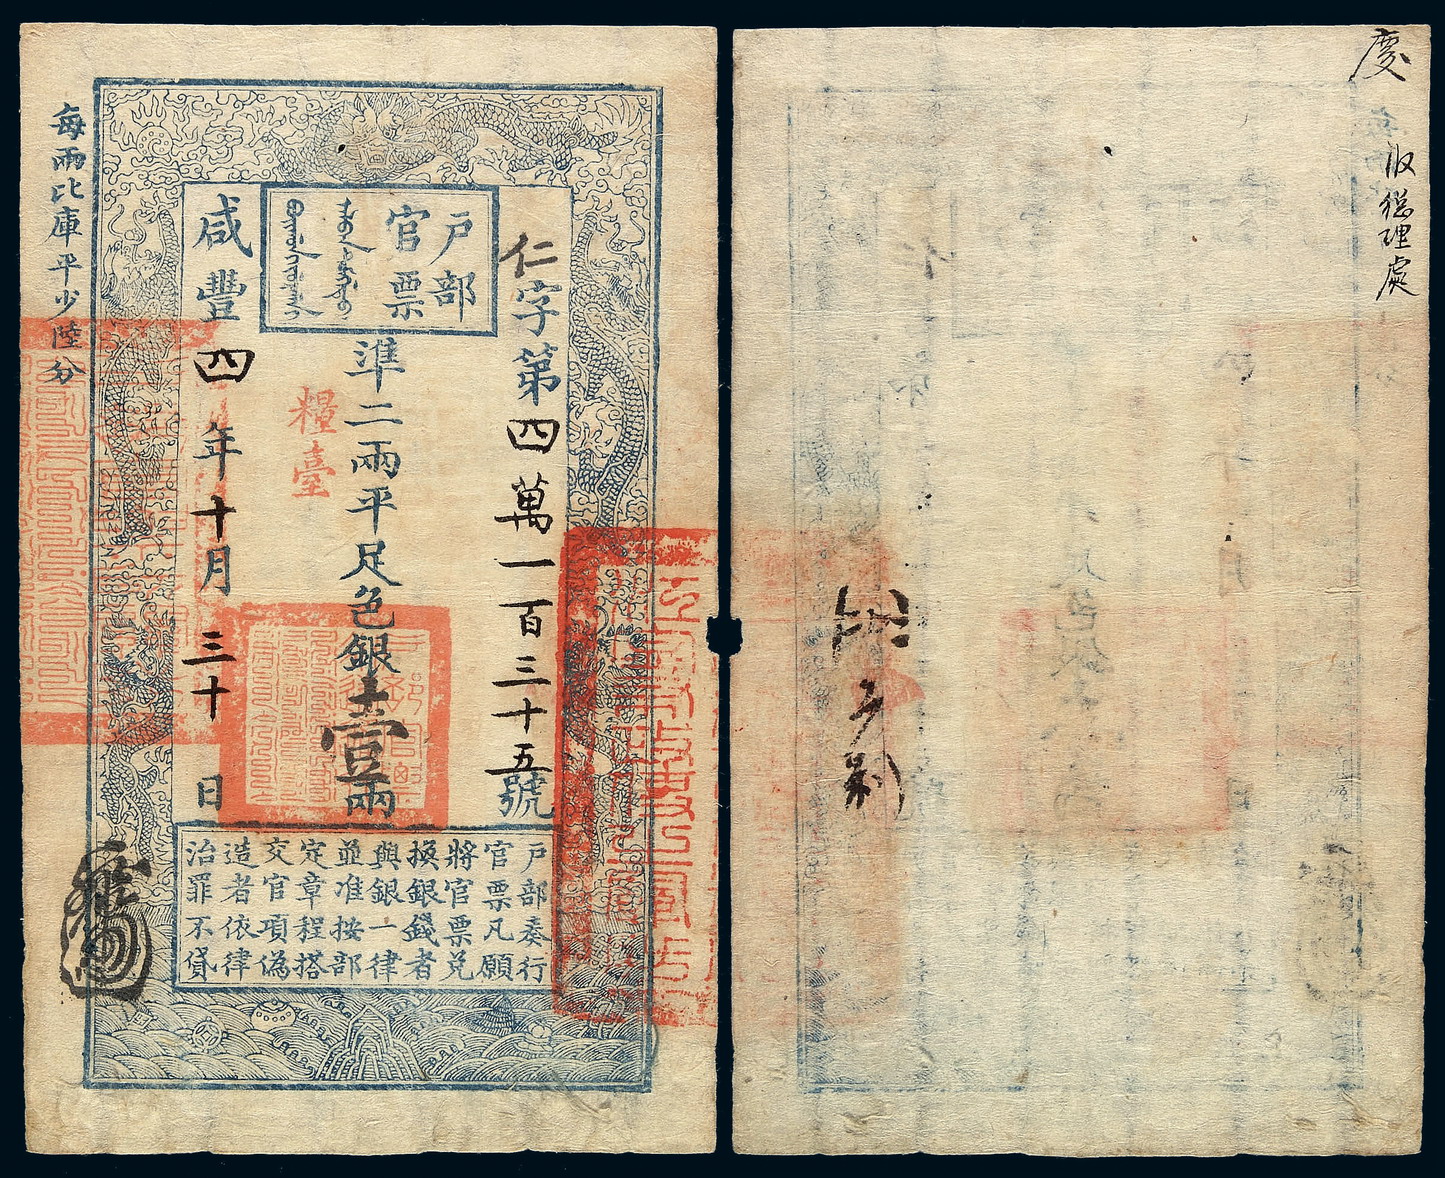 户部
官票
仁字第四萬一百三十五號
準二兩平足色銀壹兩
糧臺
咸豐四年十月三十日
每兩比庫平少陸分
户部奏行
官票凡願
將官票兑
換銀錢者
與銀一律
並准按部
定章程搭
交官項偽
造者依律
治罪不貸
慶
收總理處